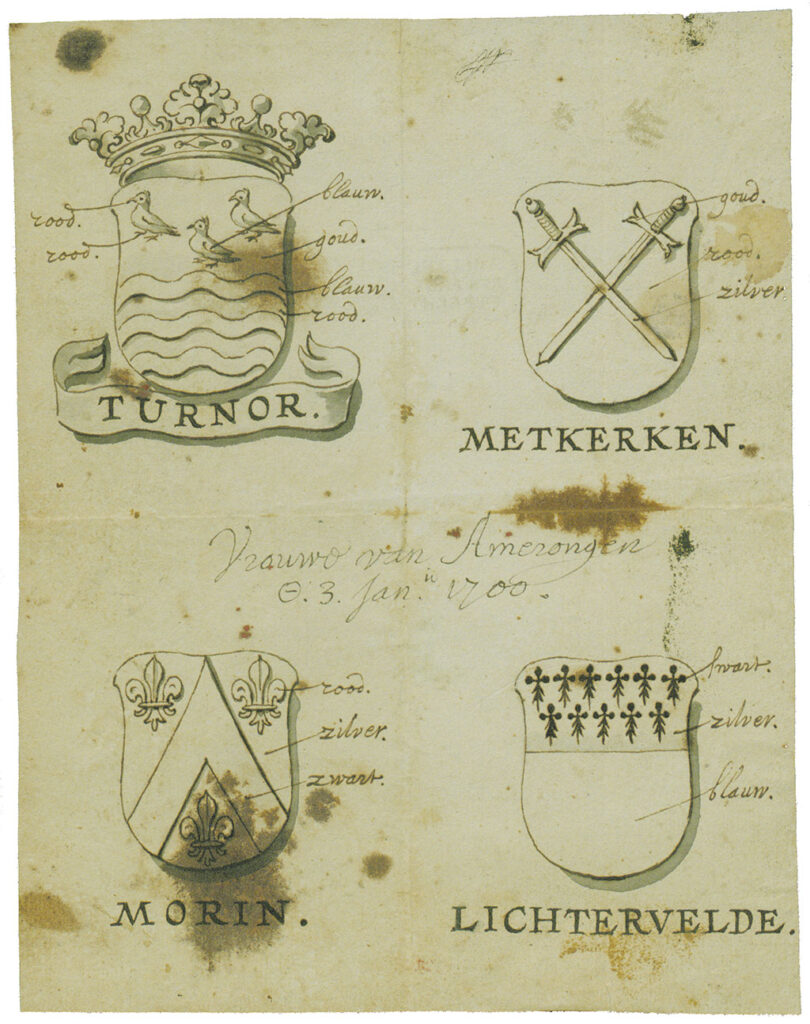 rood.
rood.
blauw.
goud.
blauw.
rood.
TURNOR.
goud.
rood.
zilver
METKERKEN.
Vrauwe van Amerongen
Θ. 3. Jan.ii 1700.
rood.
zilver.
zwart.
MORIN.
swart.
zilver.
blauw.
LICHTERVELDE.